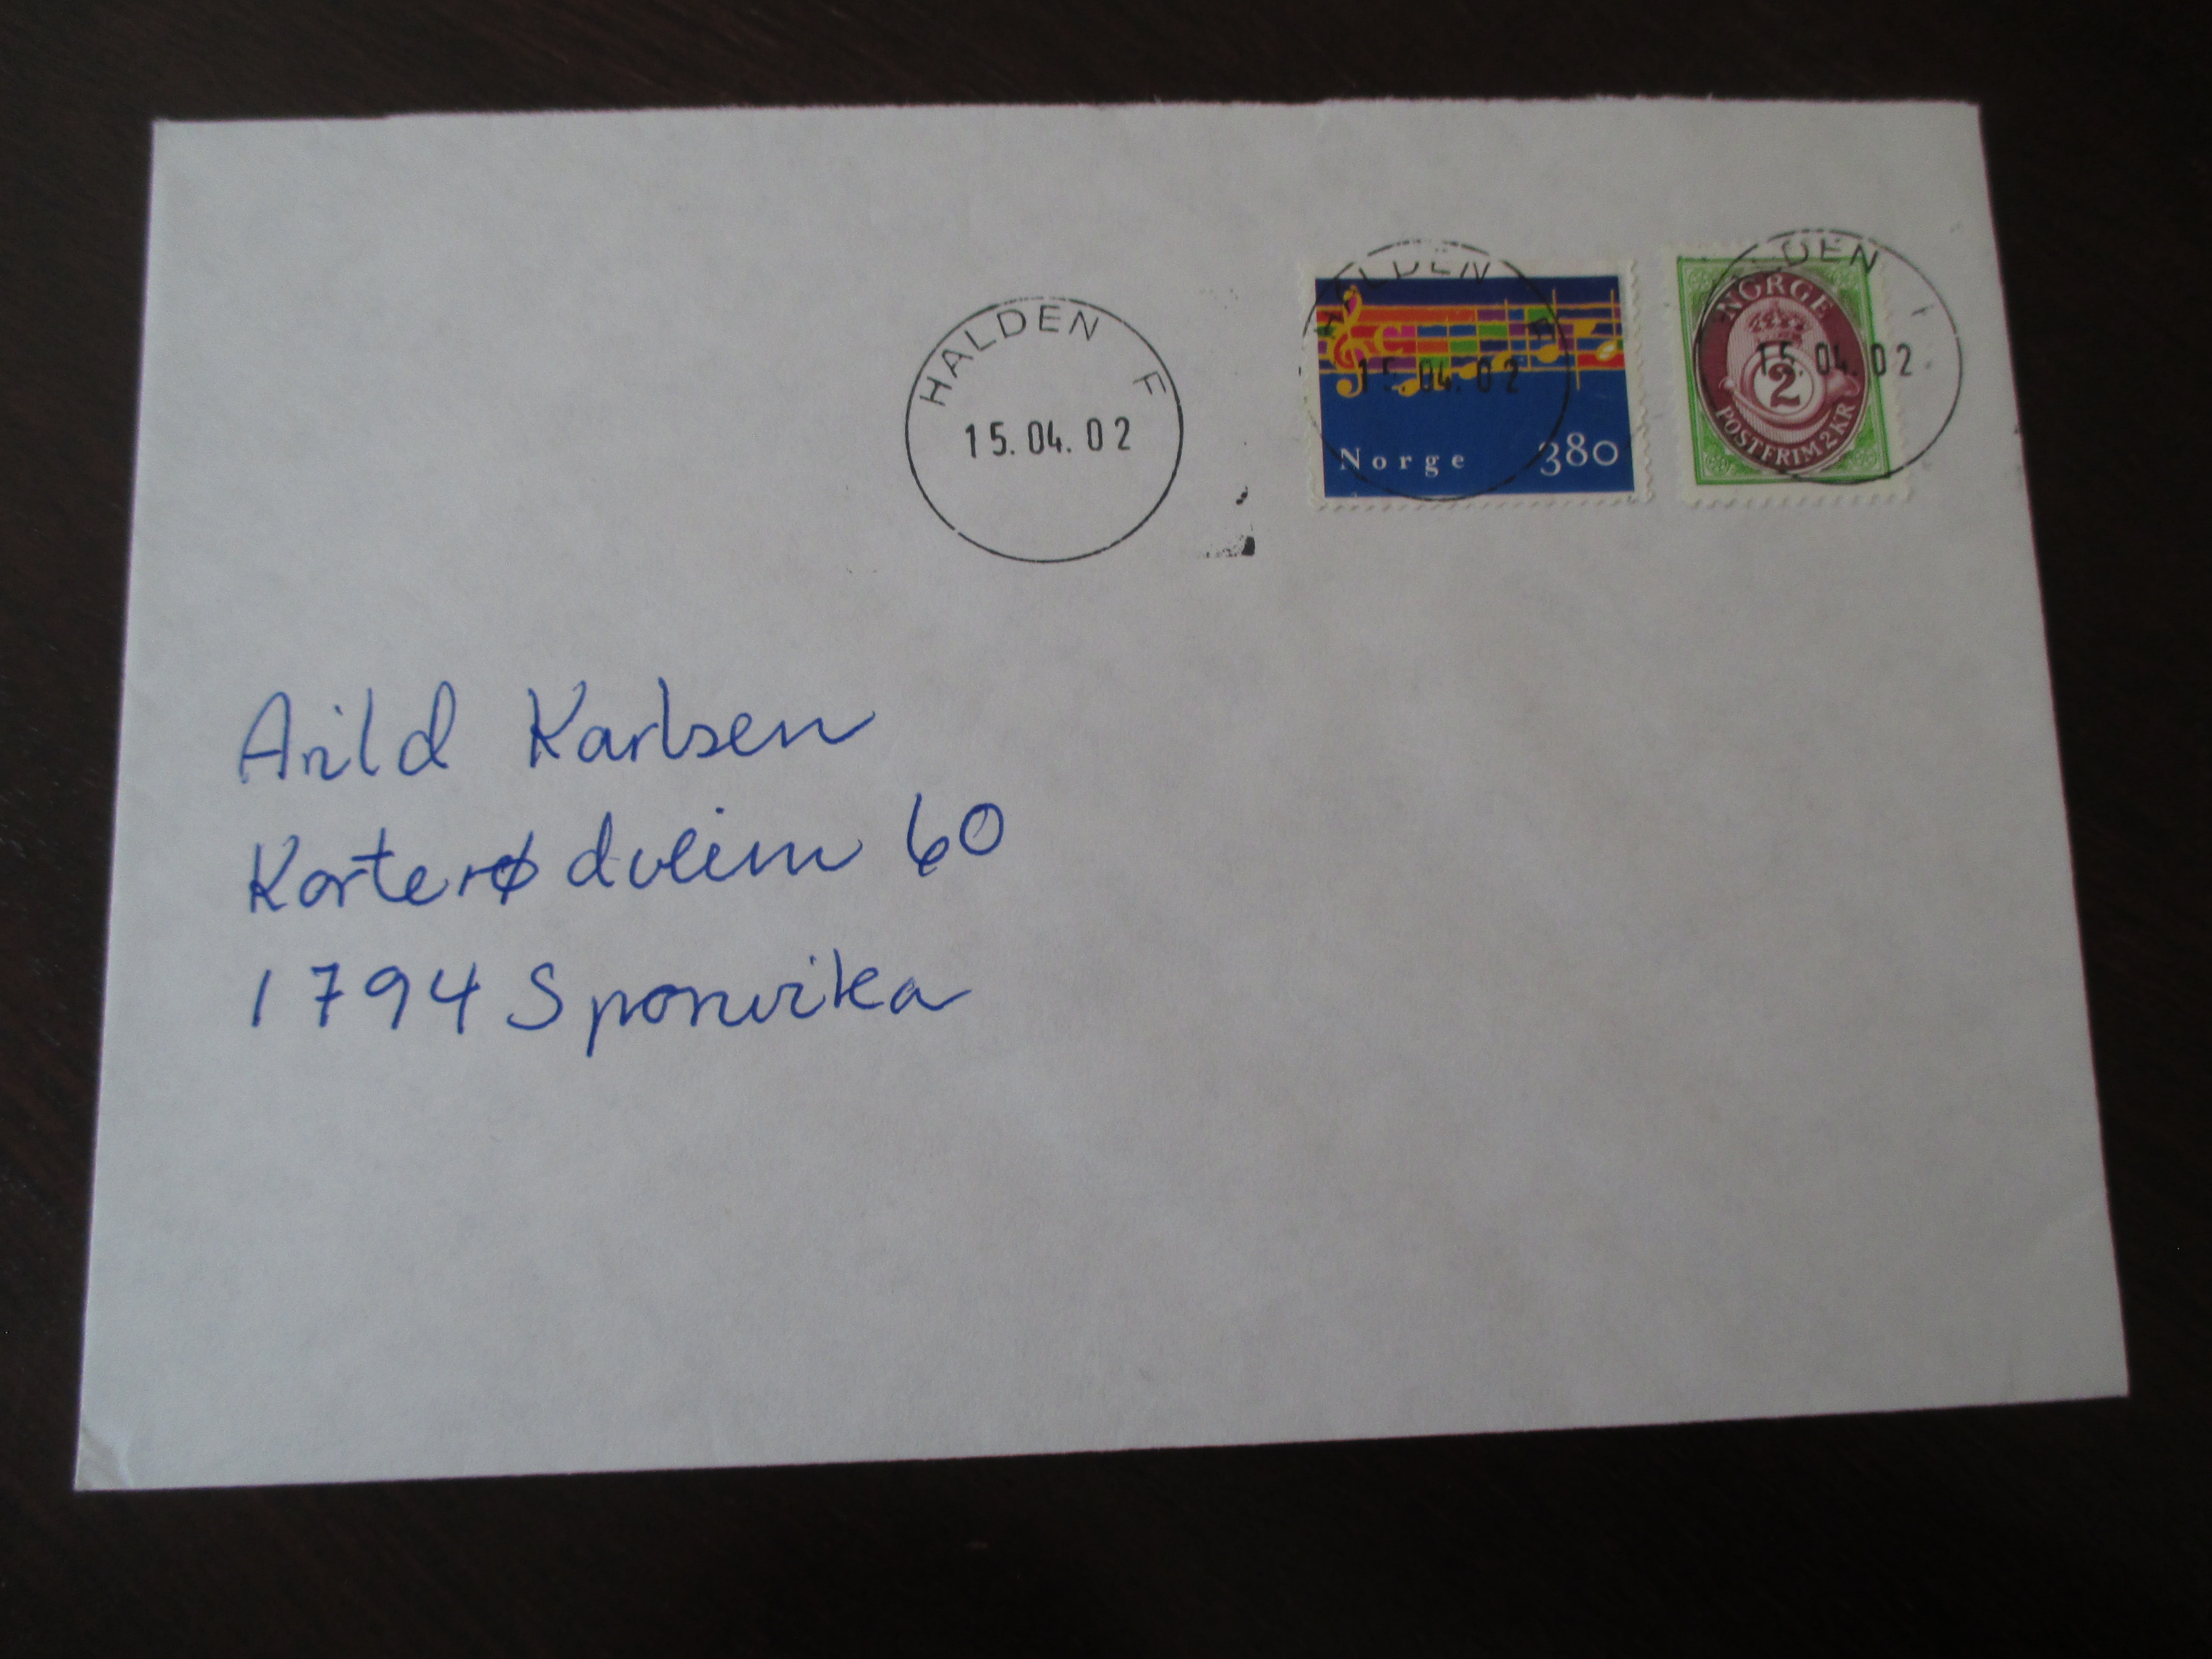 HALDEN F
15.04.02
HALDEN F
15.04.02
Norge 380
LDEN F
15.04.02
NORGE
2
POSTFRIM 2 KR
Arild Karlsen
Korterødveien 60
1794 Sponvika